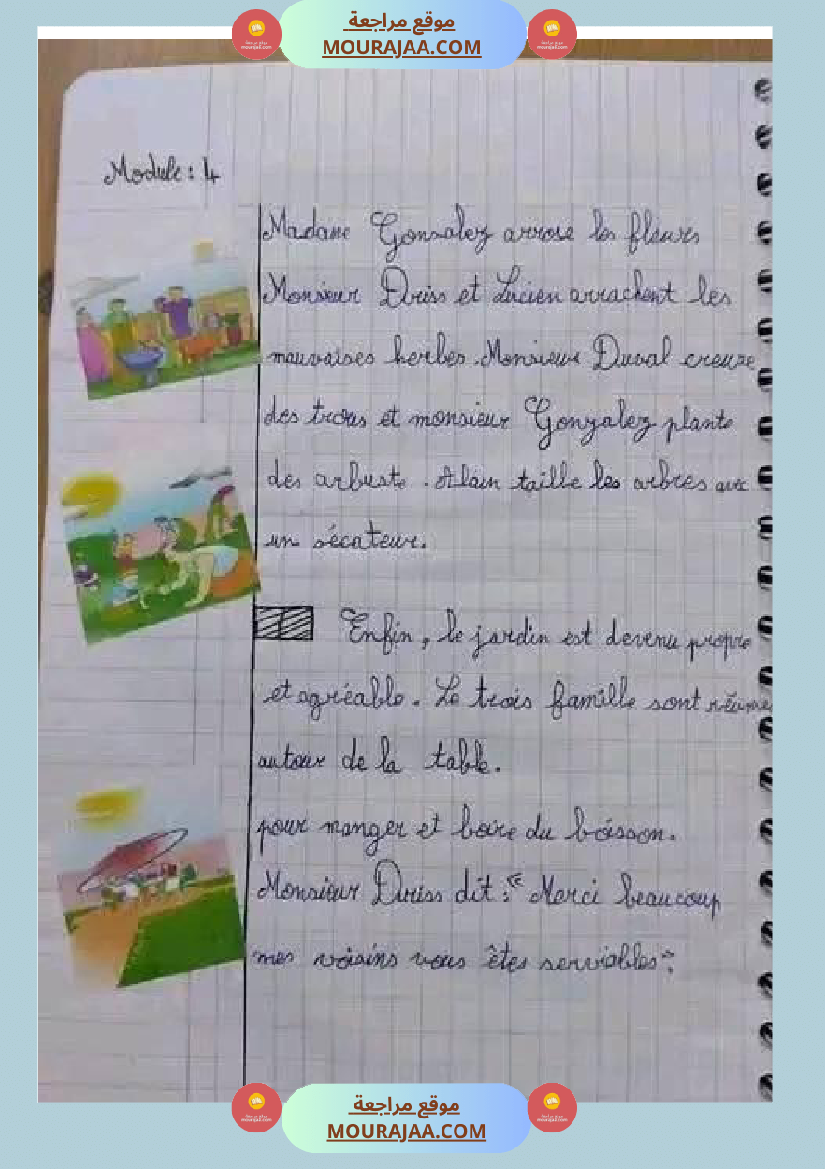 موقع مراجعة
MOURAJAA.COM
Module : 4
Madame Gonzalez arrose les fleurs
Monsieur Driss et Lucien arrachent les
mauvaises herbes. Monsieur Duval creuse
des trous et monsieur Gonzalez plante
des arbuste. Alain taille les arbres avec
un sécateur.
Enfin, le jardin est devenu propre
et agréable. Le trois famille sont réunies
autour de la table.
pour manger et boire du boisson.
Monsieur Driss dit : "Merci beaucoup
mes voisins vous êtes serviables".
موقع مراجعة
MOURAJAA.COM